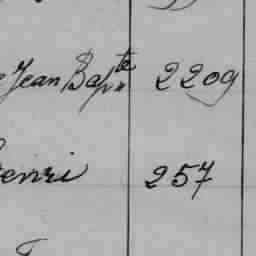 Jean Bapte 2209
Henri 257